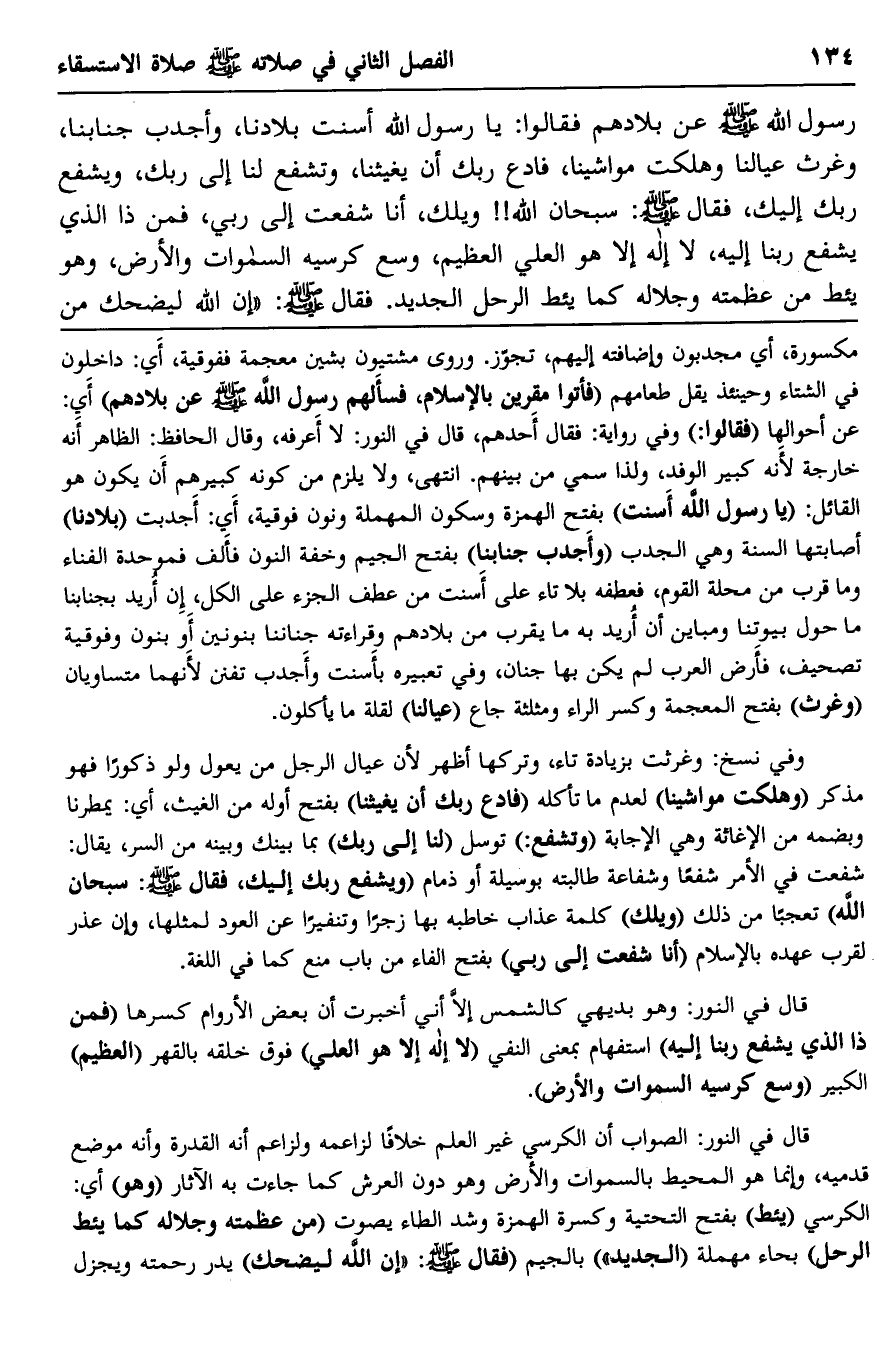 ١٣٤
الفصل الثاني في صلاته ﷺ صلاة الاستسقاء
رسول الله ﷺ عن بلادهم فقالوا: يا رسول الله أسنت بلادنا، وأجدب جنابنا،
وغرث عيالنا وهلكت مواشينا، فادع ربك أن يغيثنا، وتشفع لنا إلى ربك، ويشفع
ربك إليك، فقال ﷺ: سبحان الله!! ويلك، أنا شفعت إلى ربي، فمن ذا الذي
يشفع ربنا إليه، لا إلٰه إلا هو العلي العظيم، وسع كرسيه السمٰوات والأرض، وهو
يئط من عظمته وجلاله كما يئط الرحل الجديد. فقال ﷺ: «إن الله ليضحك من
مكسورة، أي مجدبون وإضافته إليهم، تجوّز. وروى مشتيون بشين معجمة ففوقية، أَي: داخلون
في الشتاء وحينئذ يقل طعامهم (فأتوا مقرين بالإسلام، فسألهم رسول اللَّه ﷺ عن بلادهم) أَي:
عن أحوالها (فقالوا:) وفي رواية: فقال أَحدهم، قال في النور: لا أَعرفه، وقال الحافظ: الظاهر أَنه
خارجة لأَنه كبير الوفد، ولذا سمي من بينهم. انتهى، ولا يلزم من كونه كبيرهم أَن يكون هو
القائل: (يا رسول اللَّه أَسنت) بفتح الهمزة وسكون المهملة ونون فوقية، أَي: أَجدبت (بلادنا)
أصابتها السنة وهي الجدب (وأَجدب جنابنا) بفتح الجيم وخفة النون فأَلف فموحدة الفناء
وما قرب من محلة القوم، فعطفه بلا تاء على أَسنت من عطف الجزء على الكل، إِن أُريد بجنابنا
ما حول بيوتنا ومباين أن أُريد به ما يقرب من بلادهم وقراءته جناننا بنونين أَو بنون وفوقية
تصحيف، فأَرض العرب لم يكن بها جنان، وفي تعبيره بأَسنت وأَجدب تفنن لأَنهما متساويان
(وغرث) بفتح المعجمة وكسر الراء ومثلثة جاع (عيالنا) لقلة ما يأكلون.
وفي نسخ: وغرثت بزيادة تاء، وتركها أظهر لأن عيال الرجل من يعول ولو ذكورًا فهو
مذكر (وهلكت مواشينا) لعدم ما تأكله (فادع ربك أن يغيثنا) بفتح أوله من الغيث، أي: يمطرنا
وبضمه من الإغاثة وهي الإجابة (وتشفع:) توسل (لنا إلى ربك) بما بينك وبينه من السر، يقال:
شفعت في الأمر شفعًا وشفاعة طالبته بوسيلة أو ذمام (ويشفع ربك إليك، فقال ﷺ: سبحان
اللَّه) تعجبًا من ذلك (ويلك) كلمة عذاب خاطبه بها زجرًا وتنفيرًا عن العود لمثلها، وإن عذر
لقرب عهده بالإسلام (أنا شفعت إلى ربي) بفتح الفاء من باب منع كما في اللغة.
قال في النور: وهو بديهي كالشمس إلاَّ أني أخبرت أن بعض الأروام كسرها (فمن
ذا الذي يشفع ربنا إليه) استفهام بمعنى النفي (لا إلٰه إلا هو العلي) فوق خلقه بالقهر (العظيم)
الكبير (وسع كرسيه السموات والأرض).
قال في النور: الصواب أن الكرسي غير العلم خلافًا لزاعمه ولزاعم أنه القدرة وأنه موضع
قدميه، وإنما هو المحيط بالسموات والأرض وهو دون العرش كما جاءت به الآثار (وهو) أي:
الكرسي (يئط) بفتح التحتية وكسرة الهمزة وشد الطاء يصوت (من عظمته وجلاله كما يئط
الرحل) بحاء مهملة (الجديد») بالجيم (فقال ﷺ: «إن اللَّه ليضحك) يدر رحمته ويجزل